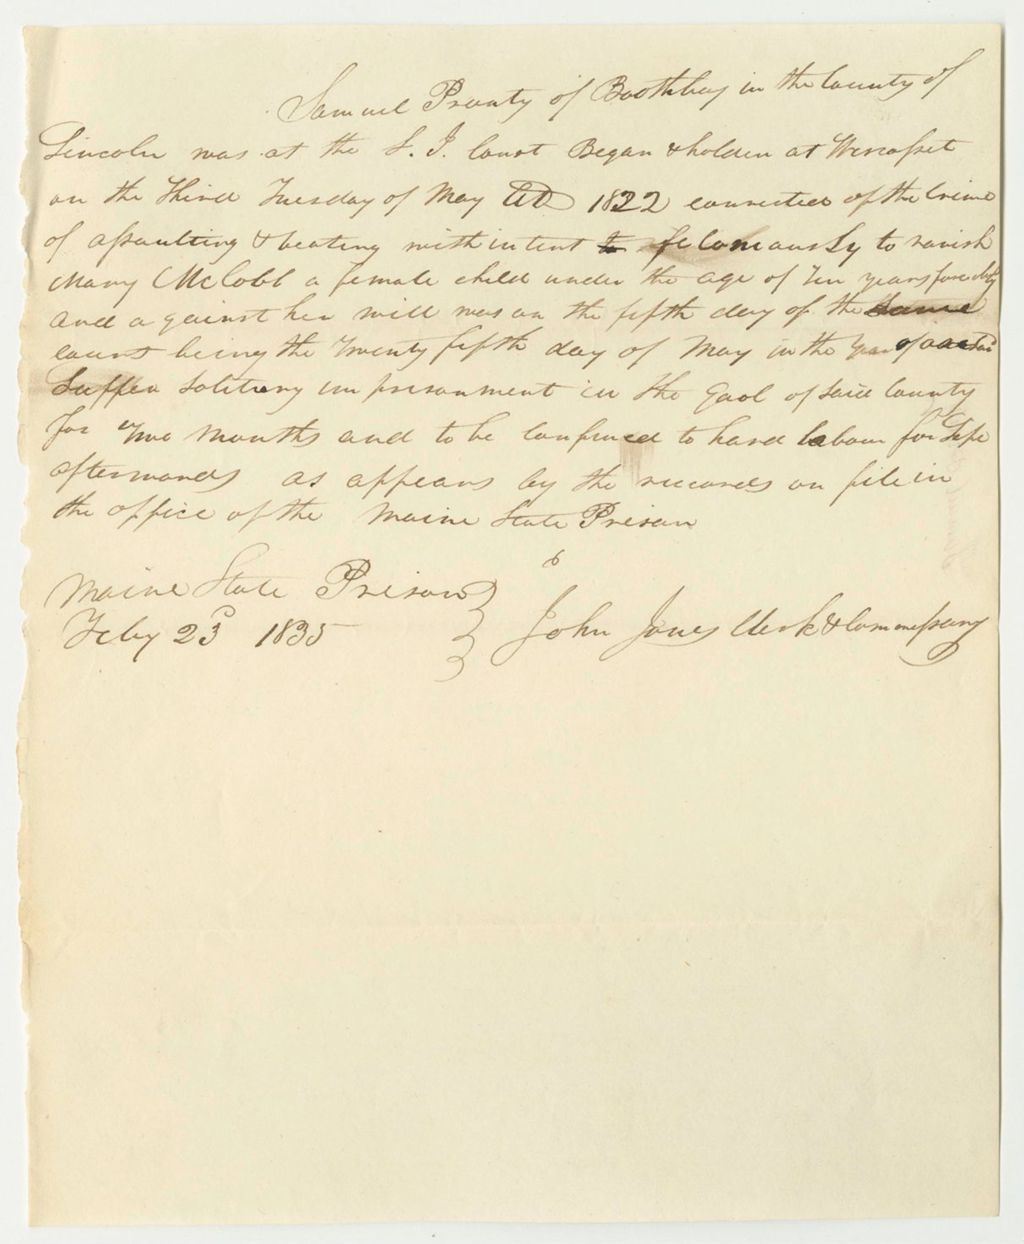 Samuel Prouty of Boothbay in the County of
Lincoln was at the S. J. Court Began & holden at Wiscasset
on the Third Tuesday of May AD 1822 convicted of the Crime
of assaulting & beating with intent to feloniously to ravish
Mary McCobb a female child under the age of Ten years forcibly
and against her will was on the fifth day of the same
court being the Twenty fifth day of May in the year of
Suffer solitary imprisonment in the Gaol of said County
for Two Months and to be confined to hard labour for Life
afterwards as appears by the records on file in
the office of the Maine State Prison
Maine State Prison
Feby 23d 1835
John Jones Clerk & Commissary